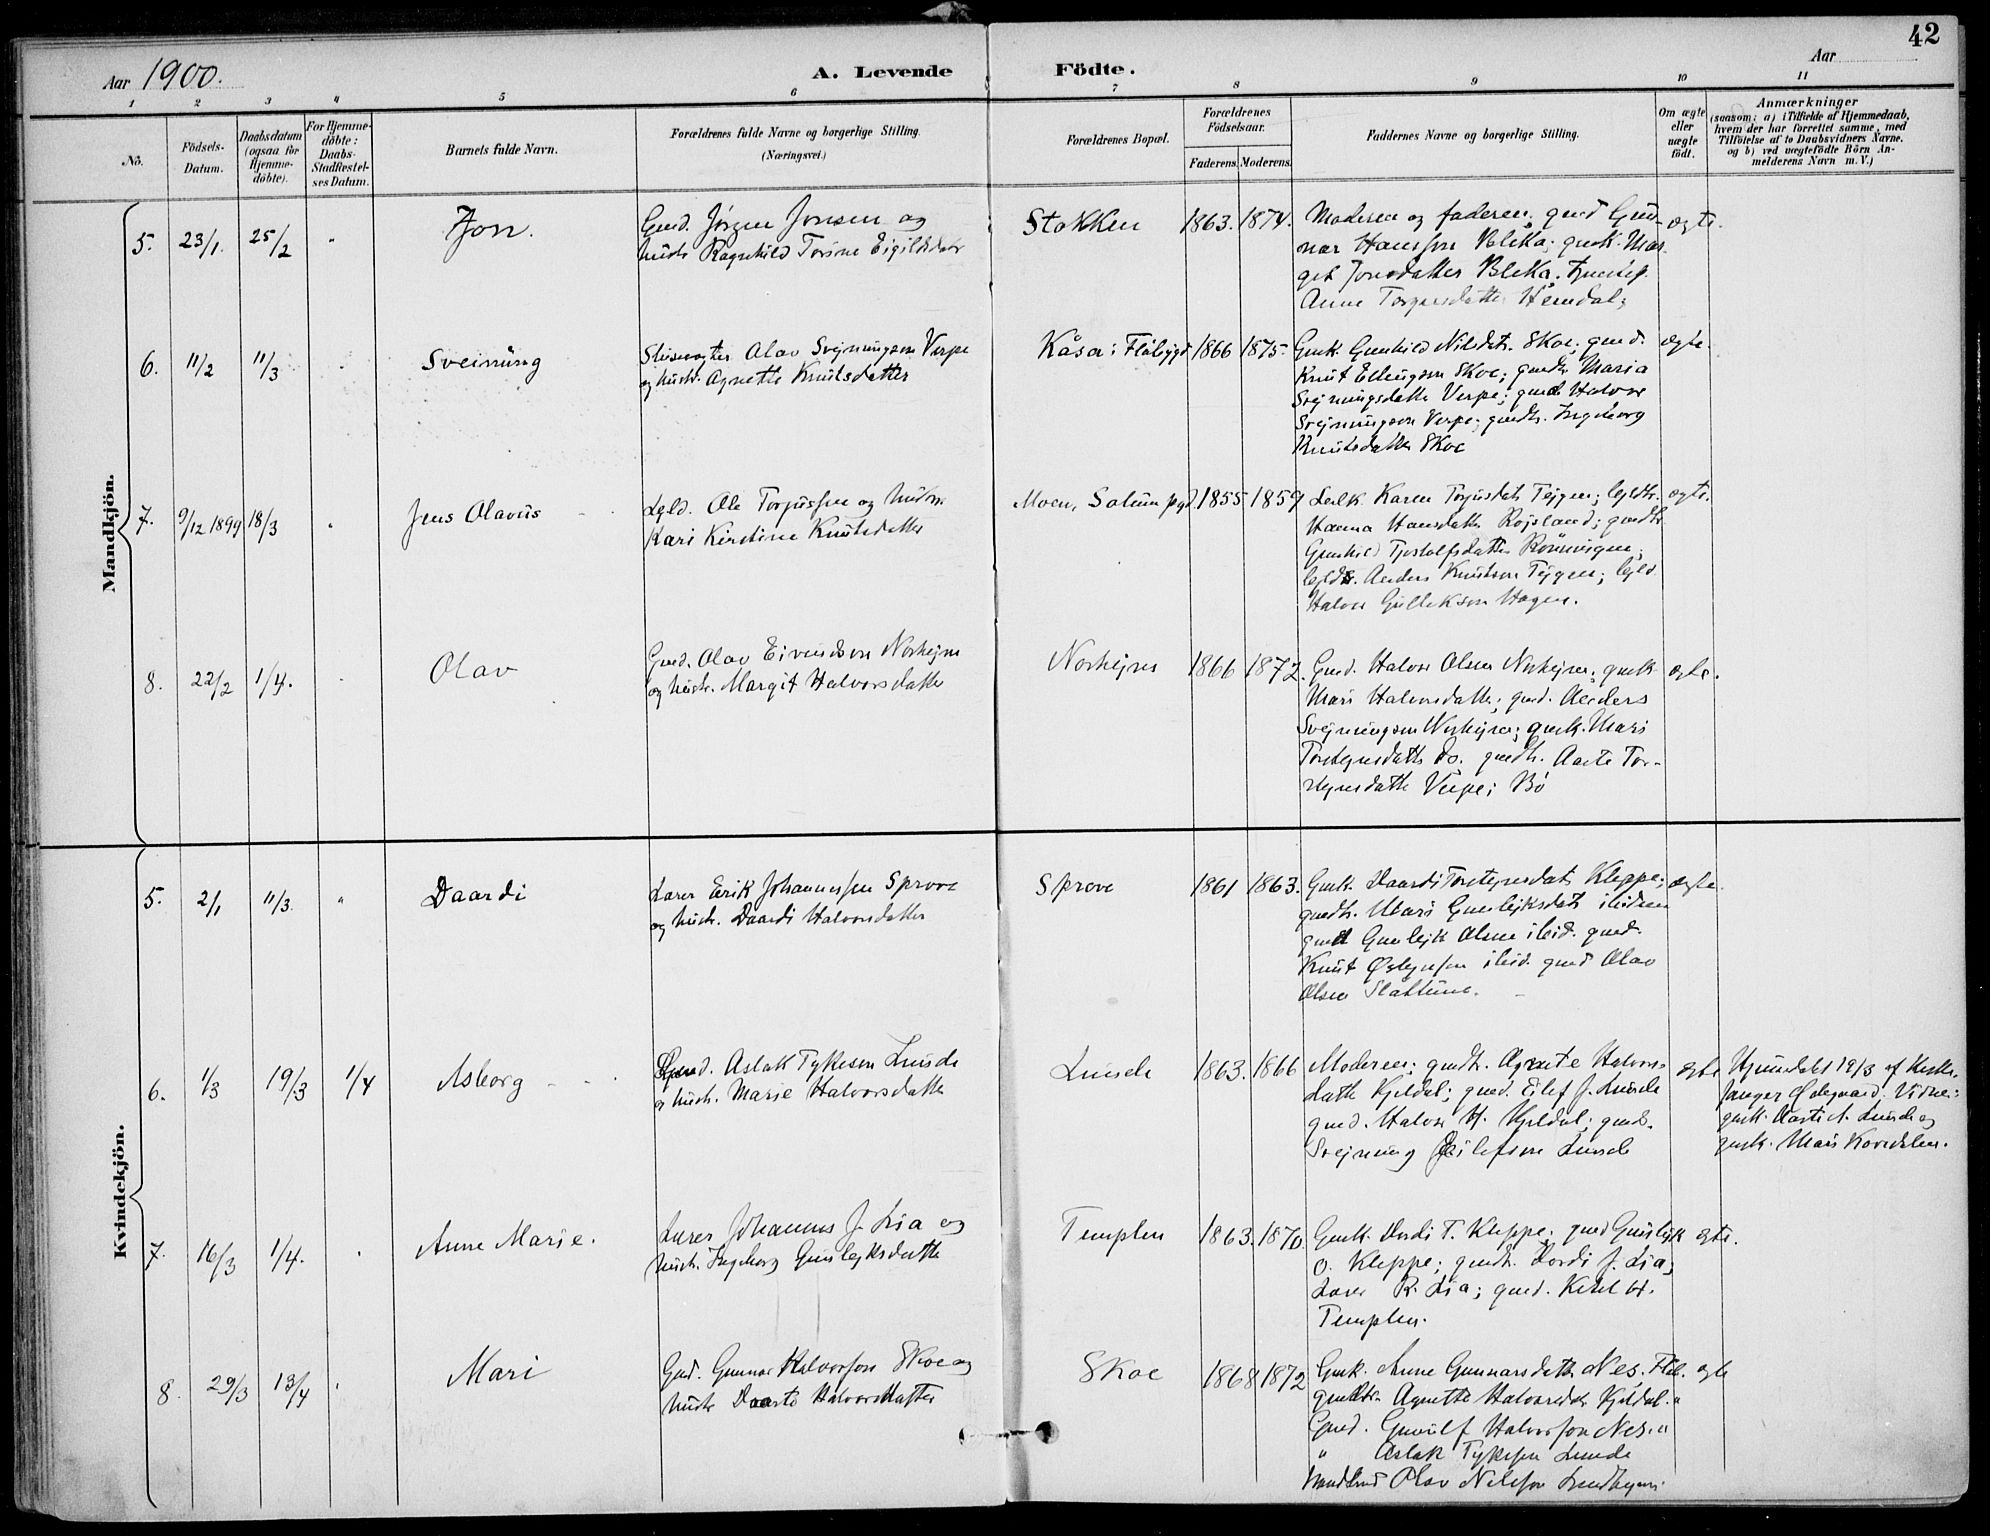 42
Aar 1900.
A. Levende Födte.
Aar
1 2 3 4 5 6 7 8 9 10 11
No.
Födsels-Datum.
Daabsdatum (ogsaa for Hjemme-döbte).
For Hjemme-döbte: Daabs-Stadfæstel-ses Datum.
Barnets fulde Navn.
Forældrenes fulde Navne og borgerlige Stilling.
(Næringsvei.)
Forældrenes Bopæl.
Forældrenes Födselsaar.
Faderens. Moderens.
Faddernes Navne og borgerlige Stilling.
Om ægte eller uægte født.
Anmærkninger
(saasom: a) i Tilfælde af Hjemmedaab,
hvem der har forrettet samme, med
Tilföielse af to Daabsvidners Navne.
og b) ved uægtefödte Börn An-
melderens Navn m. V.)
Mandkjön.
5. 23/1. 25/2 " Jon.
Gmd. Jörgen Jonsen og
hustr Ragnhild Torine Eigilsdatr
Stokken 1863. 1874.
Moderen og faderen, gmd Gun-
nar Hansson Bleka; gmk. Mar-
git Jonsdatter Bleka.
Anne Torgersdatter Hemdal;
ægte.
6. 11/2 11/3 " Sveinung
Slusevogter Olav Svejnungson Verpe
og hustr. Agnette Knutsdatter
Kåsa i Flåbygd 1866 1875.
Gmk. Gunhild Nilsdtr. Skoe; gmd.
Knut Ellingson Skoe; gmdtr Maria
Svejnungsdatter Verpe; gmd Halvor
Svejnungson Verpe; gmdtr. Ingeborg
Knutsdatter Skoe
ægte.
7. 9/12 1899 18/3 " Jens Olavus
Lejld. Ole Torjussen og hustr.
Kari Kirstine Knutsdatter
Moen, Solum pgd. 1855 1859
Karen Torjusdatr Tejgen; lejldtr.
Hanna Hansdatter Rojsland; gmdtr.
Gunhild Tjostolfsdatter Rönningen;
lejlds. Anders Knutson Tejgen; lejld.
Halvor Gullekson Hagen.
ægte.
8. 22/2 1/4. " Olav
Gmd. Olav Eivindson Norhejm
og hustr. Margit Halvorsdatter
Norhejm 1866 1872.
Gmd. Halvor Olsen Norhejm; gmk.
Mari Halvorsdatter; gmd. Anders
Svejnungson Norhejm; gmk. Mari
Torstejnsdatter do. gmdtr. Aaste Tor-
stejnsdatter Verpe; Bö
ægte.
Kvindekjön.
5. 2/1 11/3. " Daardi
Lærer Erik Johannessen Sprove
og hustr. Daardi Halvorsdatter
Sprove 1861 1863.
Gmk. Daardi Torstejnsdatr Kleppe;
gmdtr. Mari Gunlejksdatr ibidem
gmd Gunlejk Olsen ibid. gmd.
Knut Östejnsen ibid. gmd Olav
Olsen Slåttene.
ægte.
6. 1/3 19/3 1/4 Asborg
Gmd. Aslak Tykeson Lunde
og hustr. Marie Halvorsdatter
Lunde 1863. 1866
Moderen; gmdtr. Agnete Halvors-
datter Kjeldal; gmd. Eilef J. Lunde
gmd. Halvor H. Kjeldal; gmds.
Svejnung Eilefson Lunde
ægte
Hjemdøbt 19/3 af Kirke-
sanger Ødegaard. Vidner:
gmk. Aaste A. Lunde og
gmk. Mari
7. 16/3 1/4. " Anne Marie.
Lærer Johannes J. Lia og
hustr. Ingeborg Gunlejksdatter
Templen 1863. 1870.
Gmk. Dordi T. Kleppe; gmd Gunlejk
O. Kleppe; gmdtr. Dordi J. Lia;
Lærer R. Lia; gmd. Ketil H.
Templen.
ægte.
8. 29/3 13/4 " Mari
Gmd. Gunnar Halvorson Skoe og
hustr Daarte Halvorsdatter
Skoe 1868 1872
Gmk. Anne Gunnarsdatter Nes. Flåb.
Gmdtr. Agnette Halvorsdtr Kjeldal. "
Gmd. Gunulf Halvorson Nes. "
" Aslak Tykeson Lunde
Olav Nilsson
ægte